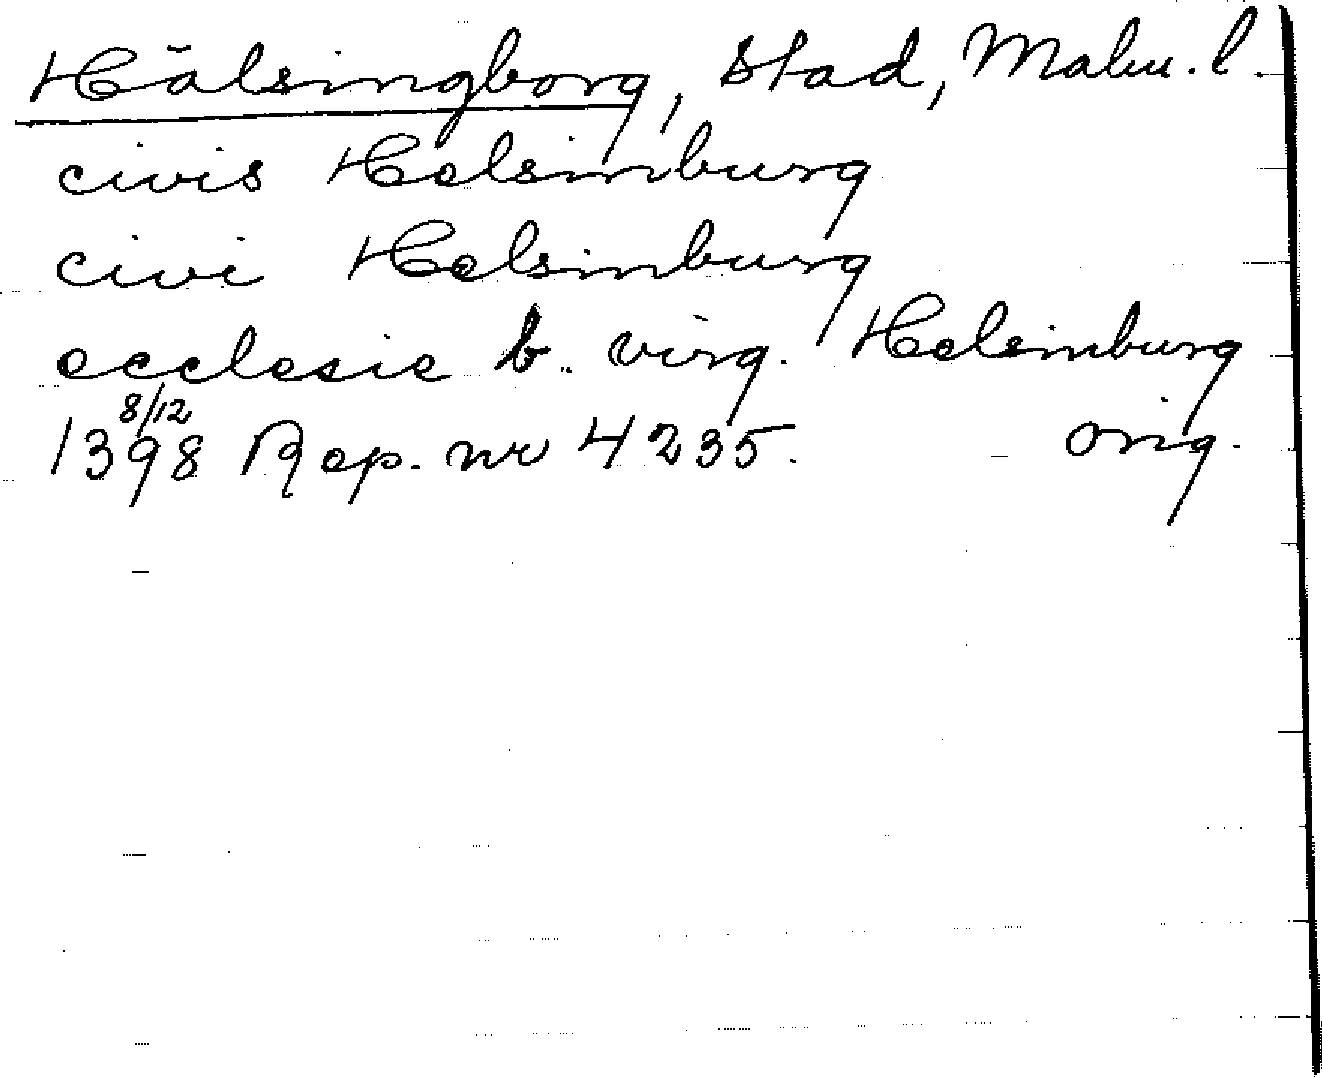 Hälsingborg, stad, Malm. l.
civis Helsimburg
civi Helsimburg
ecclesie b. virg. Helsimburg
1398 8/12 Rep. nr 4235. orig.